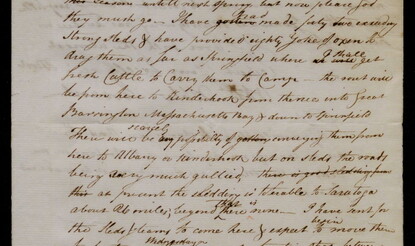 this Season untill next Spring but now please God
they must go – I have gotten had made forty two exceeding
Strong Sleds & have provided eighty Yoke of oxen to
drag them as far as Springfield where I shall get
fresh Cattle to Carry them to Camp – the rout will
be from here to Kinderhook from thence into Great
Barrington Massachusetts Bay & down to Springfield
There will scarcely be possibility of conveying them from
here to Albany or Kinderhook but on sleds the roads
being very much gullied – there is good sledding from
this at present the sledding is tolerable to Saratoga
about 26 miles; beyond that there is none – I have sent for
the Sleds & teams to come here & expect to begin to move them
Wednesday